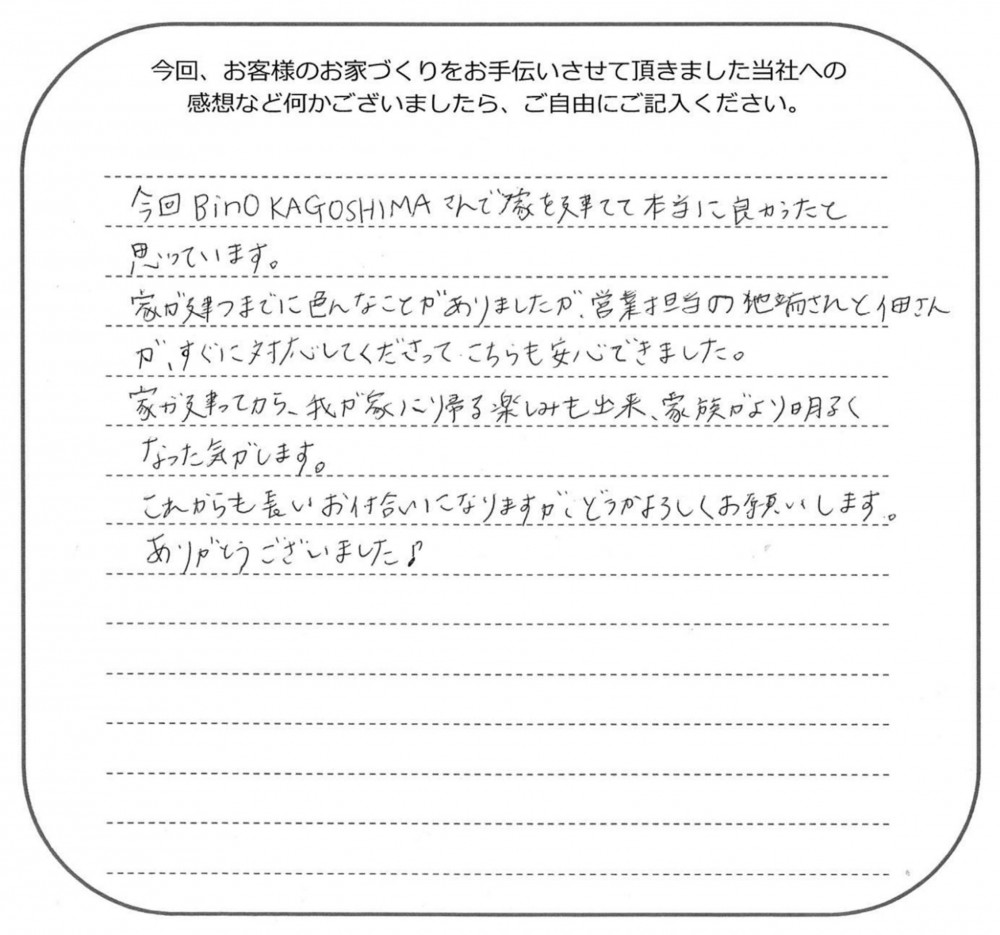 今回、お客様のお家づくりをお手伝いさせて頂きました当社への
感想など何かございましたら、ご自由にご記入ください。
今回BinO KAGOSHIMAさんで家を建てて本当に良かったと
思っています。
家が建つまでに色んなことがありましたが、営業担当の池端さんと佃さん
が、すぐに対応してくださって、こちらも安心できました。
家が建ってから、我が家に帰る楽しみも出来、家族がより明るく
なった気がします。
これからも長いお付合いになりますが、どうかよろしくお願いします。
ありがとうございました♪